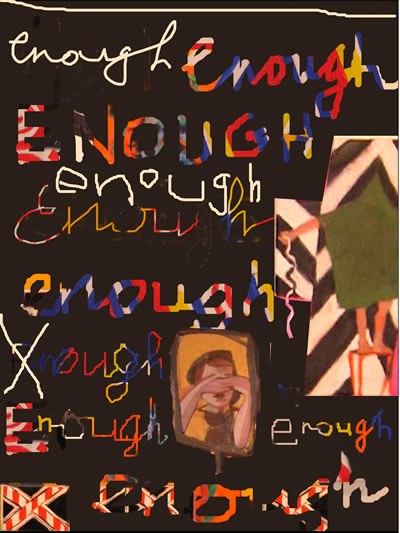 enough enough
ENOUGH
enough
Enough
enough
Enough
Enough enough
enough